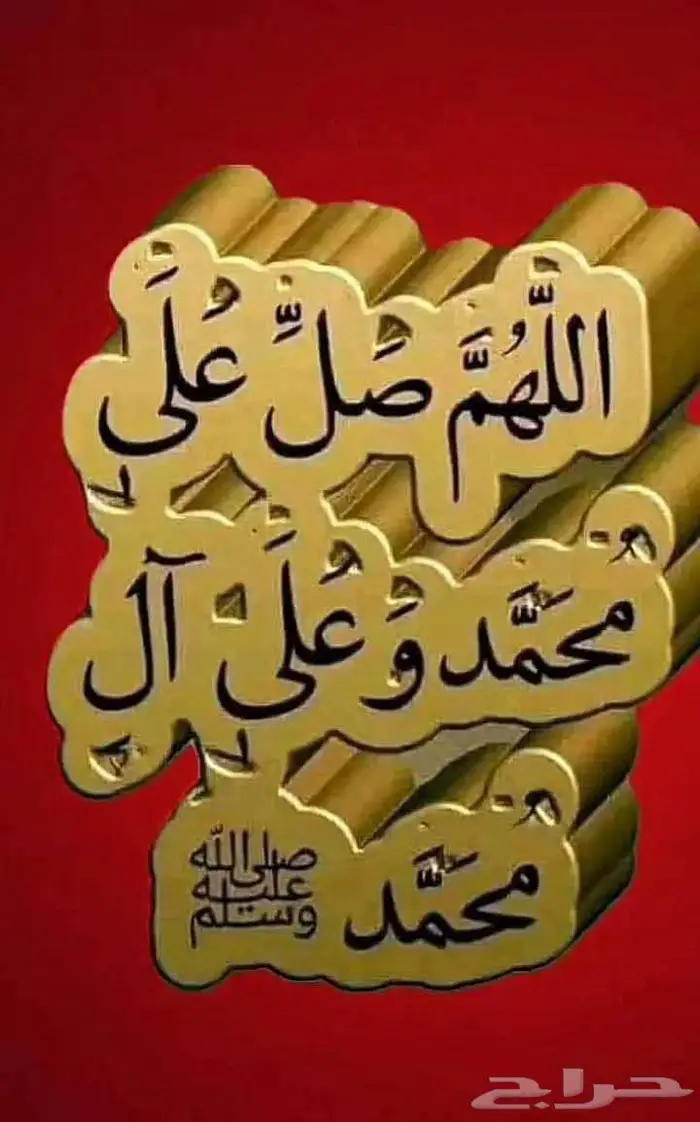 اللَّهُمَّ صَلِّ عَلَى
مُحَمَّد وَ عَلَى آلِ
مُحَمَّد ﷺ
حراج